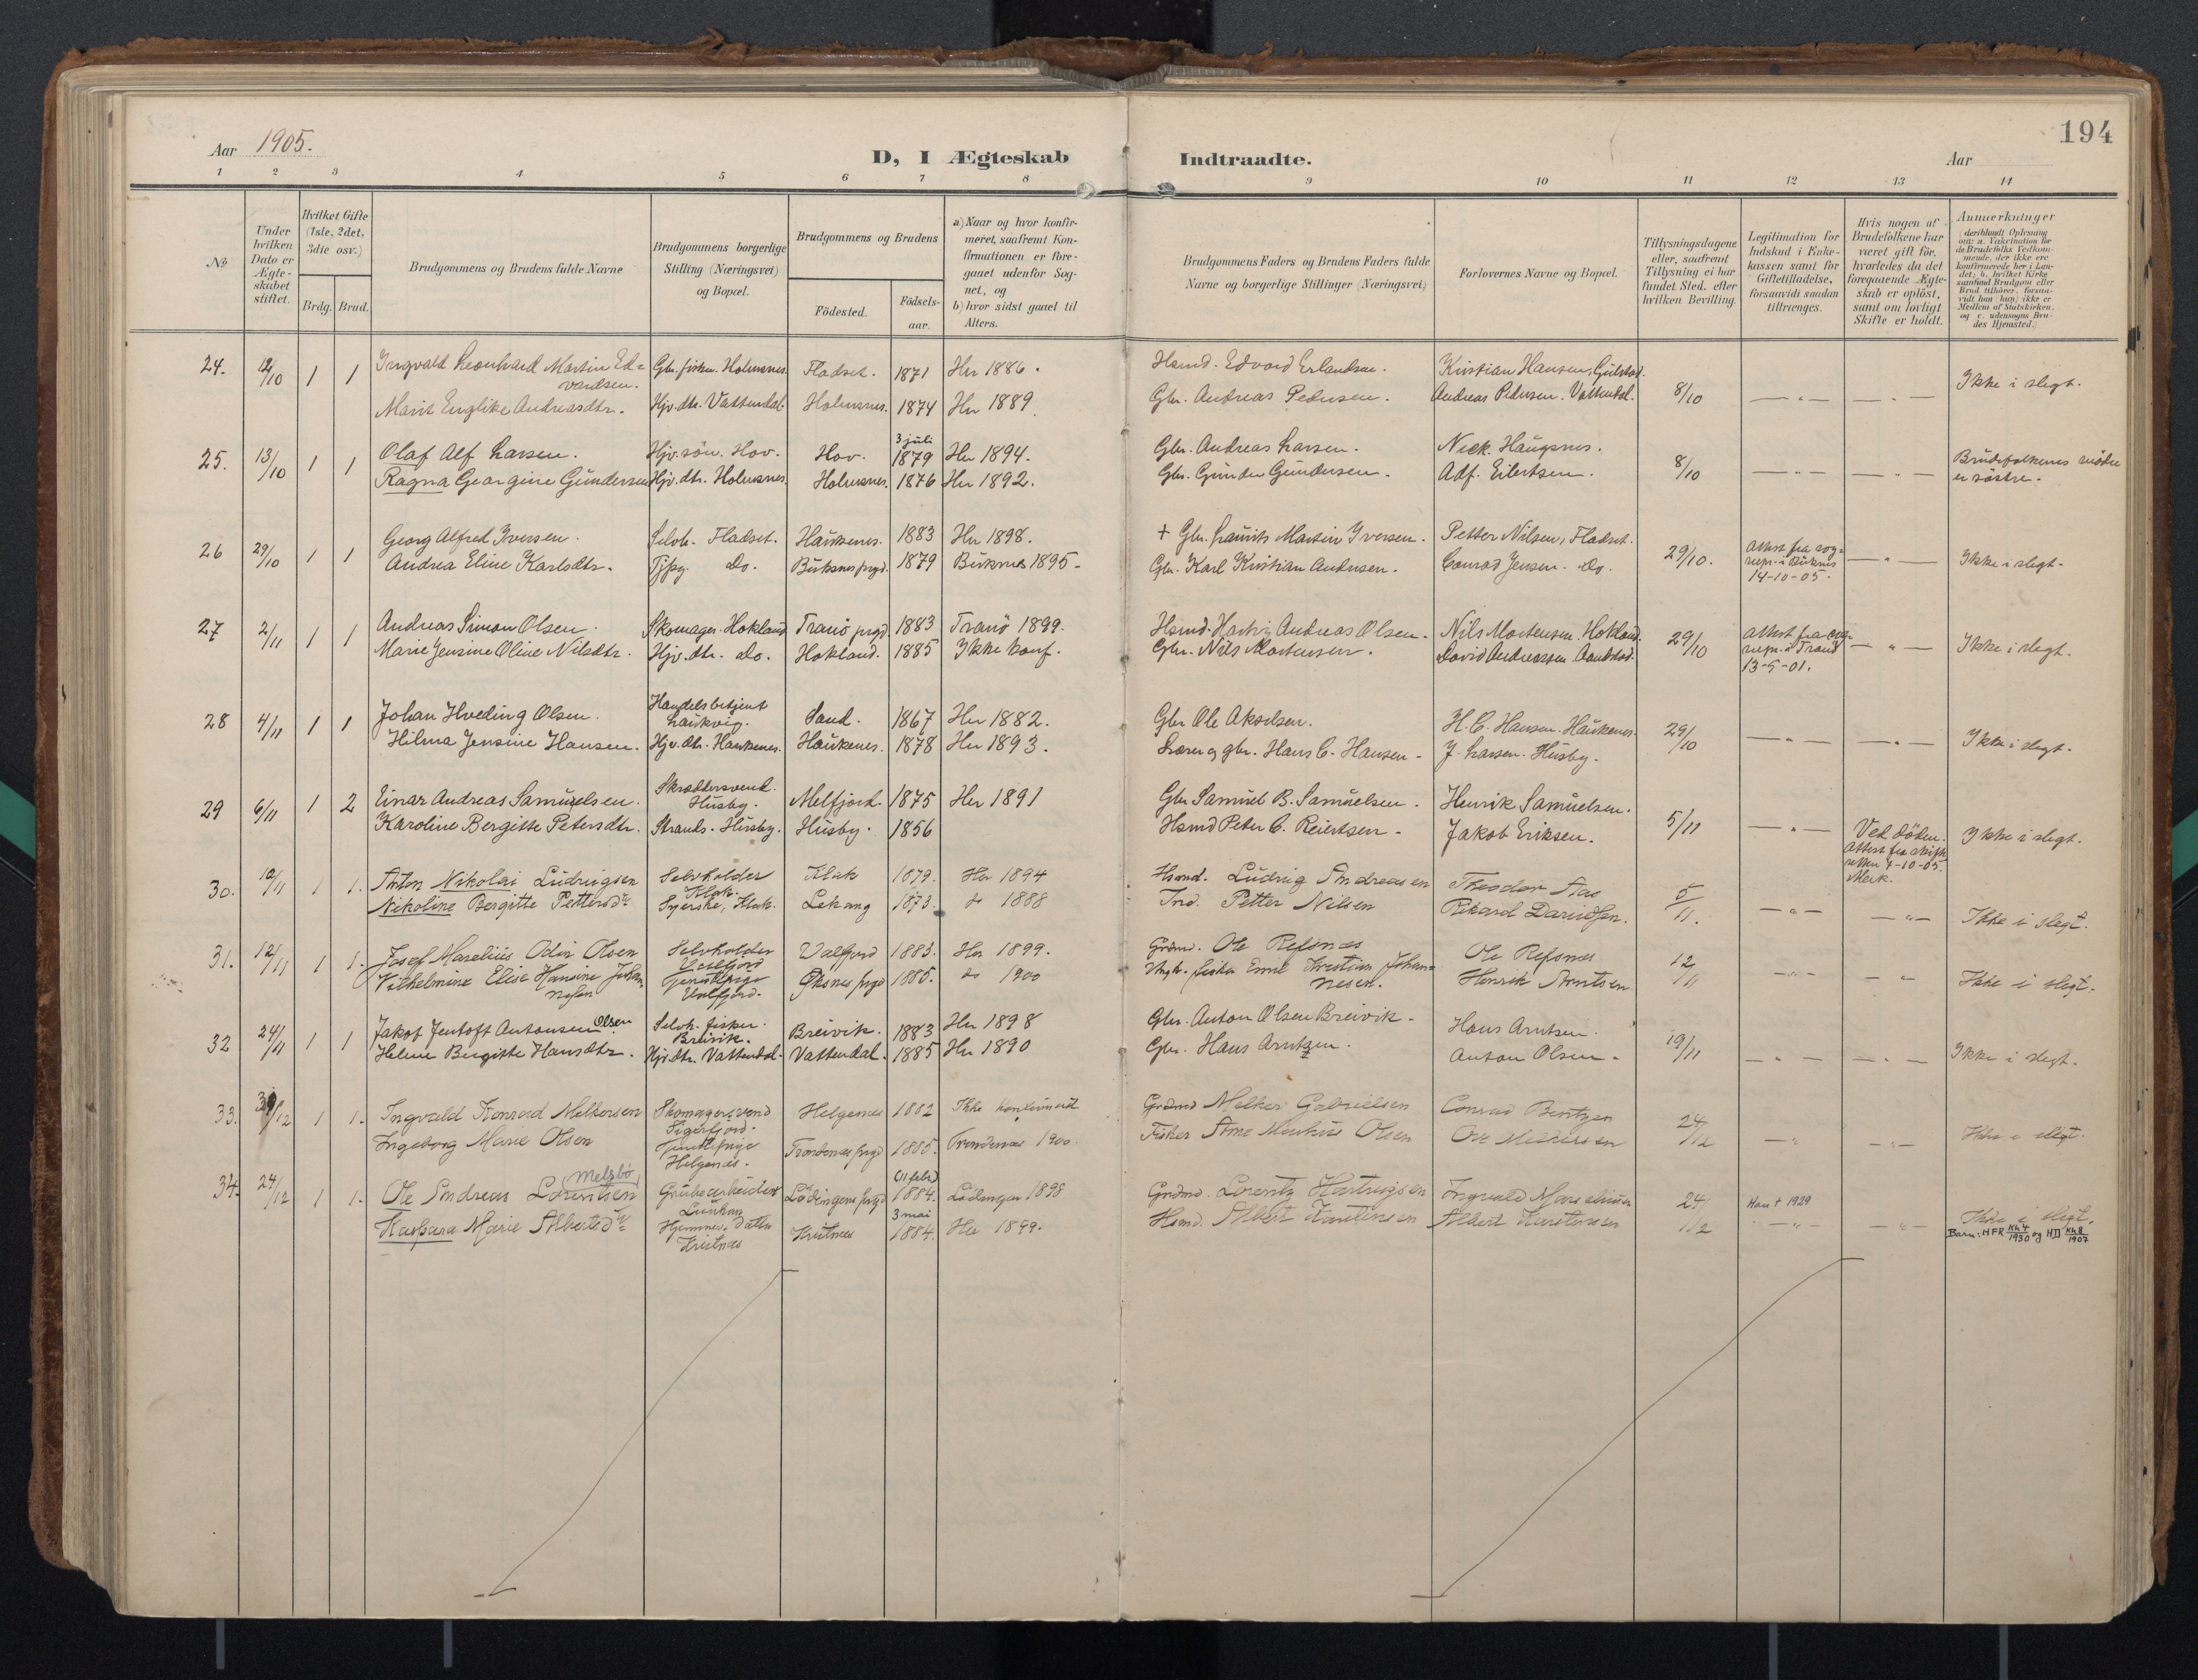 194
Aar 1905.
D, I Ægteskab Indtraadte.
Aar
1 2 3 4 5 6 7 8 9 10 11 12 13 14
No
Under hvilken Dato er Ægteskabet stiftet.
Hvilket Gifte (1ste, 2det, 3die osv.)
Brdg. Brud.
Brudgommens og Brudens fulde Navne
Brudgommens borgerlige Stilling (Næringsvei) og Bopæl.
Brudgommens og Brudens
Födested. Födselsaar.
a) Naar og hvor konfirmeret, saafremt Konfirmationen er foregaaet udenfor Sognet, og
b) hvor sidst gaaet til Alters.
Brudgommens Faders og Brudens Faders fulde Navne og borgerlige Stillinger (Næringsvei)
Forlovernes Navne og Bopæl.
Tillysningsdagene eller, saafremt Tillysning ei har fundet Sted. efter hvilken Bevilling.
Legitimation for Indskud i Enkekassen samt for Giftetilladelse, forsaavidt saadan tiltrænges.
Hvis nogen af Brudefolkene har været gift för, hvorledes da det foregaaende Ægteskab er oplöst, samt om lovligt Skifte er holdt.
Anmerkninger
(deriblandt Oplysning om: a. Vakcination for de Brudefolks Vedkommende, der ikke ere konfirmerede her i Landet; b. hvilket Kirkesamfund Brudgom eller Brud tilhører, forsaavidt han (hun) ikke er Medlem af Statskirken. og c. udensogns Brudes Hjemsted.)
24. 12/10 1 1 Ingvald Leonhard Martin Ed=vardsen. Gbr. fisker. Holmsnes. Fladset. 1871 Her 1886. Hsmd. Edvard Erlandsen. Kristian Hansen, Gulstad.
Marit Englike Andreasdtr. Hjv. dtr. Vattendal. Holmsnes. 1874 Her 1889. Gbr. Andreas Pedersen. Andreas Pedersen. Vattendal. 8/10 — " — — " — Ikke i slegt.
25. 13/10 1 1 Olaf Alf Larsen. Hjv. sön. Hov. Hov. 3 juli 1879 Her 1894. Gbr. Andreas Larsen. Nick. Haugsnes.
Ragna Georgine Gundersen Hjv. dtr. Holmsnes. Holmsnes. 1876 Her 1892. Gbr. Gunder Gundersen. Adf. Eilertsen. 8/10 — " — — " — Brudefolkenes mödre er söstre.
26 29/10 1 1 Georg Alfred Iversen. Selvh. Fladset. Haukenes. 1883 Her 1898. + Gbr. Laurits Martin Iversen. Petter Nilsen, Fladset.
Andrea Eline Karlsdtr. Tjpg. do. Buksnes prgd. 1879 Buksnes 1895. Gbr. Karl Kristian Andersen. Conrad Jensen. do. 29/10. Attest fra sognepr. i Buksnes 14-10-05. — " — Ikke i slegt.
27 2/11 1 1 Andreas Simon Olsen. Skomager. Hokland Tranö prgd. 1883 Tranö 1899. Hsmd. Hartvig Andreas Olsen. Nils Mortensen. Hokland.
Marie Jensine Oline Nilsdtr. Hjv. dtr. do. Hokland. 1885 Ikke konf. Gbr. Nils Mortensen. David Andreassen. Aanstad. 29/10 Attest fra sognepr. i Tranö 13-9-01. — " — Ikke i slegt.
28 4/11 1 1 Johan Hveding Olsen. Handelsbetjent Laukvig. Sand. 1867 Her 1882. Gbr Ole Akselsen. H. C. Hansen. Haukenes.
Hilma Jensine Hansen. Hjv. dtr. Haukenes. Haukenes. 1878 Her 1893. Lærer og gbr. Hans C. Hansen. J. Larsen. Husby. 29/10 — " — — " — Ikke i slegt.
29 6/11 1 2 Einar Andreas Samuelsen. Skræddersvend. Husby. Melfjord. 1875 Her 1891 Gbr Samuel B. Samuelsen. Henrik Samuelsen.
Karoline Bergitte Petersdtr. Strands. Husby. Husby. 1856 Hsmd Peter C. Reiertsen. Jakob Eriksen. 5/11 — " — Ved döden. Attest fra skifteretten 7-10-05. Ikke i slegt.
30. 10/11 1 1. Anton Nikolai Ludvigsen Selvholder Klak. Klak 1879. Her 1894 Hsmd. Ludvig Andreasen Theodor Aas
Nikoline Bergitte Pettersdtr Syerske, Klak. Lekang 1873. do 1888 Ind. Petter Nilsen Rikard Davidsen. 5/11. — " — — " — Ikke i slegt.
31. 12/11 1 1. Josef Marelius Odin Olsen Selvholder Valfjord Valfjord 1883. Her 1899. Grdmd. Ole Refsnes Ole Refsnes
Vilhelmine Elise Hansine Johannesen Tjenestepige Valfjord. Øksnes prgd 1885. do 1900 fisker Emil Kristian Johannesen. Henrik Arntsen 12/11 — " — — " — Ikke i slegt.
32 24/11 1 1 Jakob Jentoft Antonsen Olsen Selvh. fisker. Breivik. Breivik. 1883 Her 1898 Gbr. Anton Olsen Breivik. Hans Arntsen.
Helene Birgitte Hansdtr. Hjv. dtr. Vattendal. Vattendal. 1885 Her 1890 Gbr. Hans Arntzen. Anton Olsen. 19/11 — " — — " — Ikke i slegt.
33. /12 1 1. Ingvald Konrad Melkersen Skomagersvend Sigerfjord. Helgenes 1882 Ikke konfirmeret Grdmd Melker Gabrielsen Conrad Bentzen
Ingeborg Marie Olsen Tjenestepige Helgenes. Trondenes prgd 1885. Trondenes 1900. Fisker Arne Markus Olsen Ole Melkersen 24/12 — " — " — Ikke i slegt.
34. 24/12 1 1. Ole Andreas Lorentsen Melsbö Grubearbeider Lödingens prgd (11 febr) 1884. Lödingen 1898 Grdmd. Lorentz Hartvigsen Ingvald Marselius
Kaspara Marie Albertsdtr Hjemmev. datter Krutnes Krutnes 3 mai 1884. Her 1899. Hsmd. Albert Karstensen Albert Karstensen 24/12 Han † 1929 — " — — " — Ikke i slegt.
Barn: HFR Kh4/1930 og HD Kh8/1907